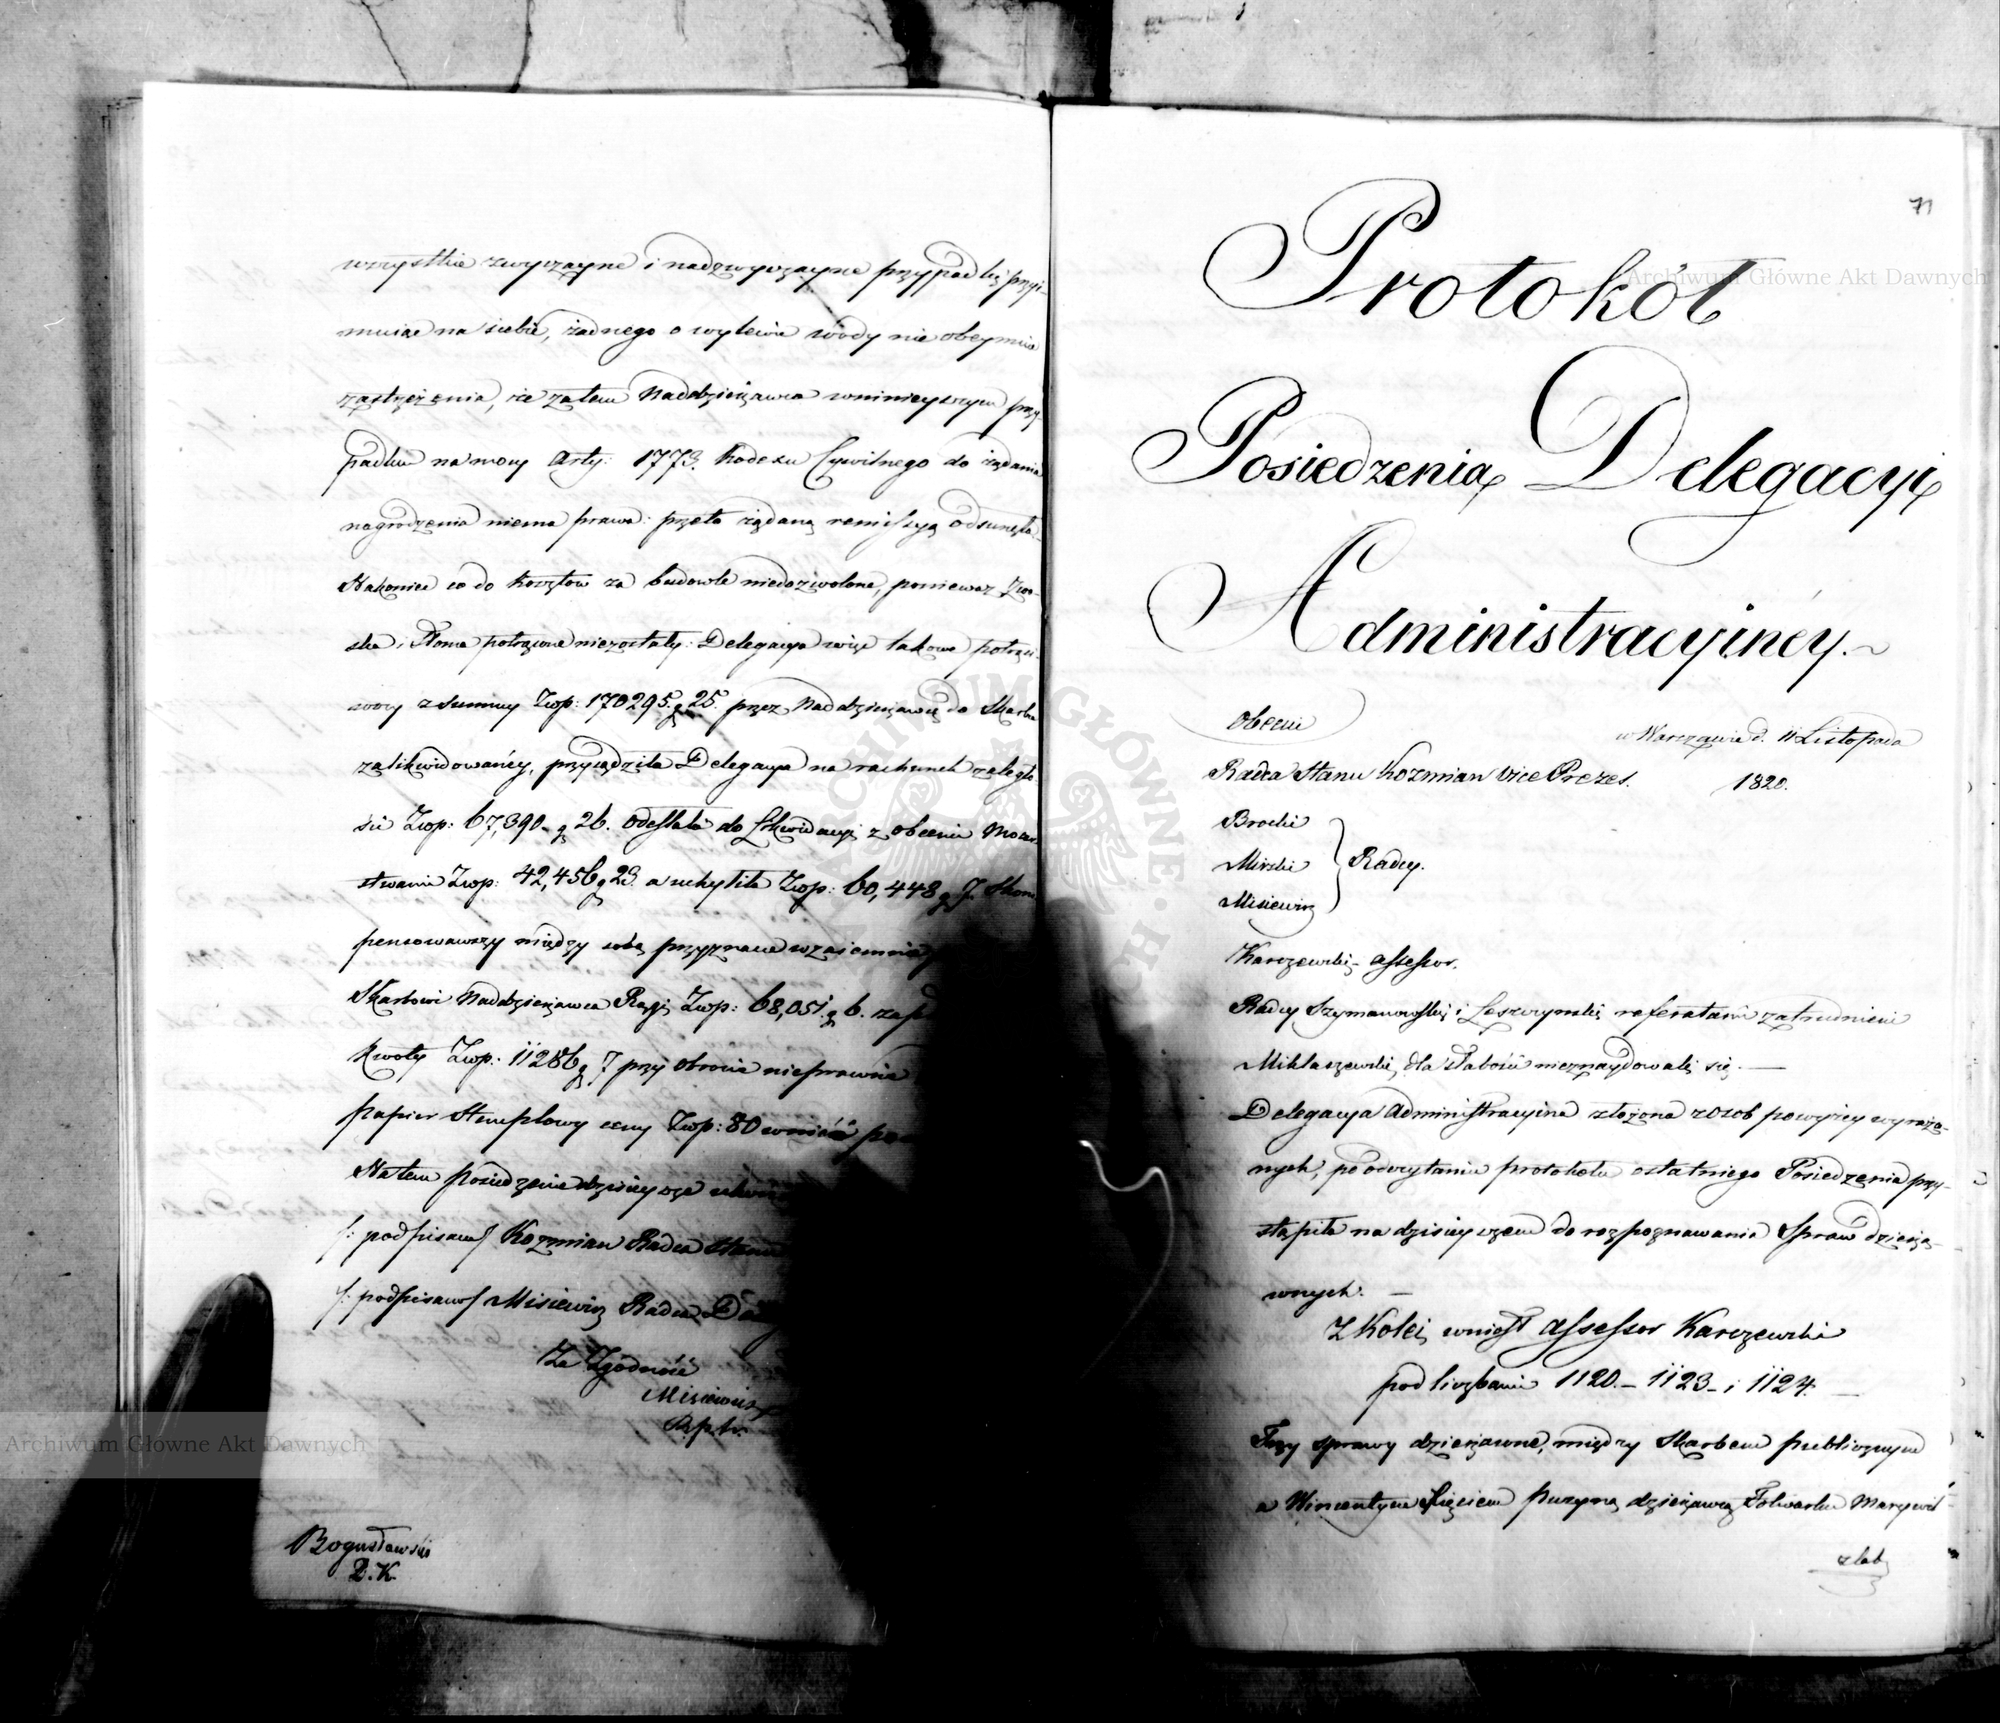 wszystkie zwyczayne i nadzwyczayne przypadki przyi-
muiąc na siebie, żadnego o wylewie wody nie obeymuie
zastrzeżenia, że zatem Naddzierżawca w ninieyszym przy-
padku na mocy Arty: 1773. Kodexu Cywilnego do żądania
nagrodzenia niema prawa: przeto żądaną remissyą odsunęła
Nakoniec co do kosztów za budowle niedozwolone, ponieważ
Słoma potrącone niezostały: Delegacya więc takowe
z summy Złp: 170295. g 25. przez Naddzierżawcę do Skarbu
zalikwidowanéy, przysądziła Delegacya na rachunek zaległo-
ści Złp: 67,390. g 26. odesłała do Likwidacyi z obcemi Mocar-
stwami Złp: 42,456 g 23. a uchyliła Złp: 60,448 g 7. Skom
pensowawszy między sobą przyznane wzajemnie
Skarbowi Naddzierżawca Złp: 68,051. g 6.
kwoty Złp: 11286 g 7 przy obronie nieprawnie
papier Stemplowy ceny Złp: 80 wnieść
Na tem posiedzenie dzisieysze
/: podpisano/ Kozmian Radca Stanu
/: podpisano/ Misiewicz Radca
Za Zgodność
Misiewicz
Bogusławski
D. K.
71
Protokół
Posiedzenia Delegacyi
Administracyinéy.
obecni
w Warszawie d. 11 Listopada
Radca Stanu Kozmian Vice Prezes.
1820.
Brocki
Mirski
Radcy.
Misiewicz
Karczewski – Assessor.
Radcy Szymanowski i Leszczyński referatami zatrudnieni
Miklaszewski, dla słabości nieznaydowali się. —
Delegacya Administracyina złożona z osób powyżey wyraża-
nych, po odczytaniu protokołu ostatniego Posiedzenia przy-
stąpiła na dzisieyszem do rozpoznawania Spraw dzierża-
wnych. —
Z Kolei wniosł Assessor Karczewski
pod liczbami 1120. – 1123 – i 1124. —
Trzy sprawy dzierżawne, między Skarbem publicznym
a Wincentym Xięciem Puzyną dzierżawcą Folwarku Marywil
z lat
Archiwum Główne Akt Dawnych
Archiwum Główne Akt Dawnych
ARCHIWUM GŁÓWNE